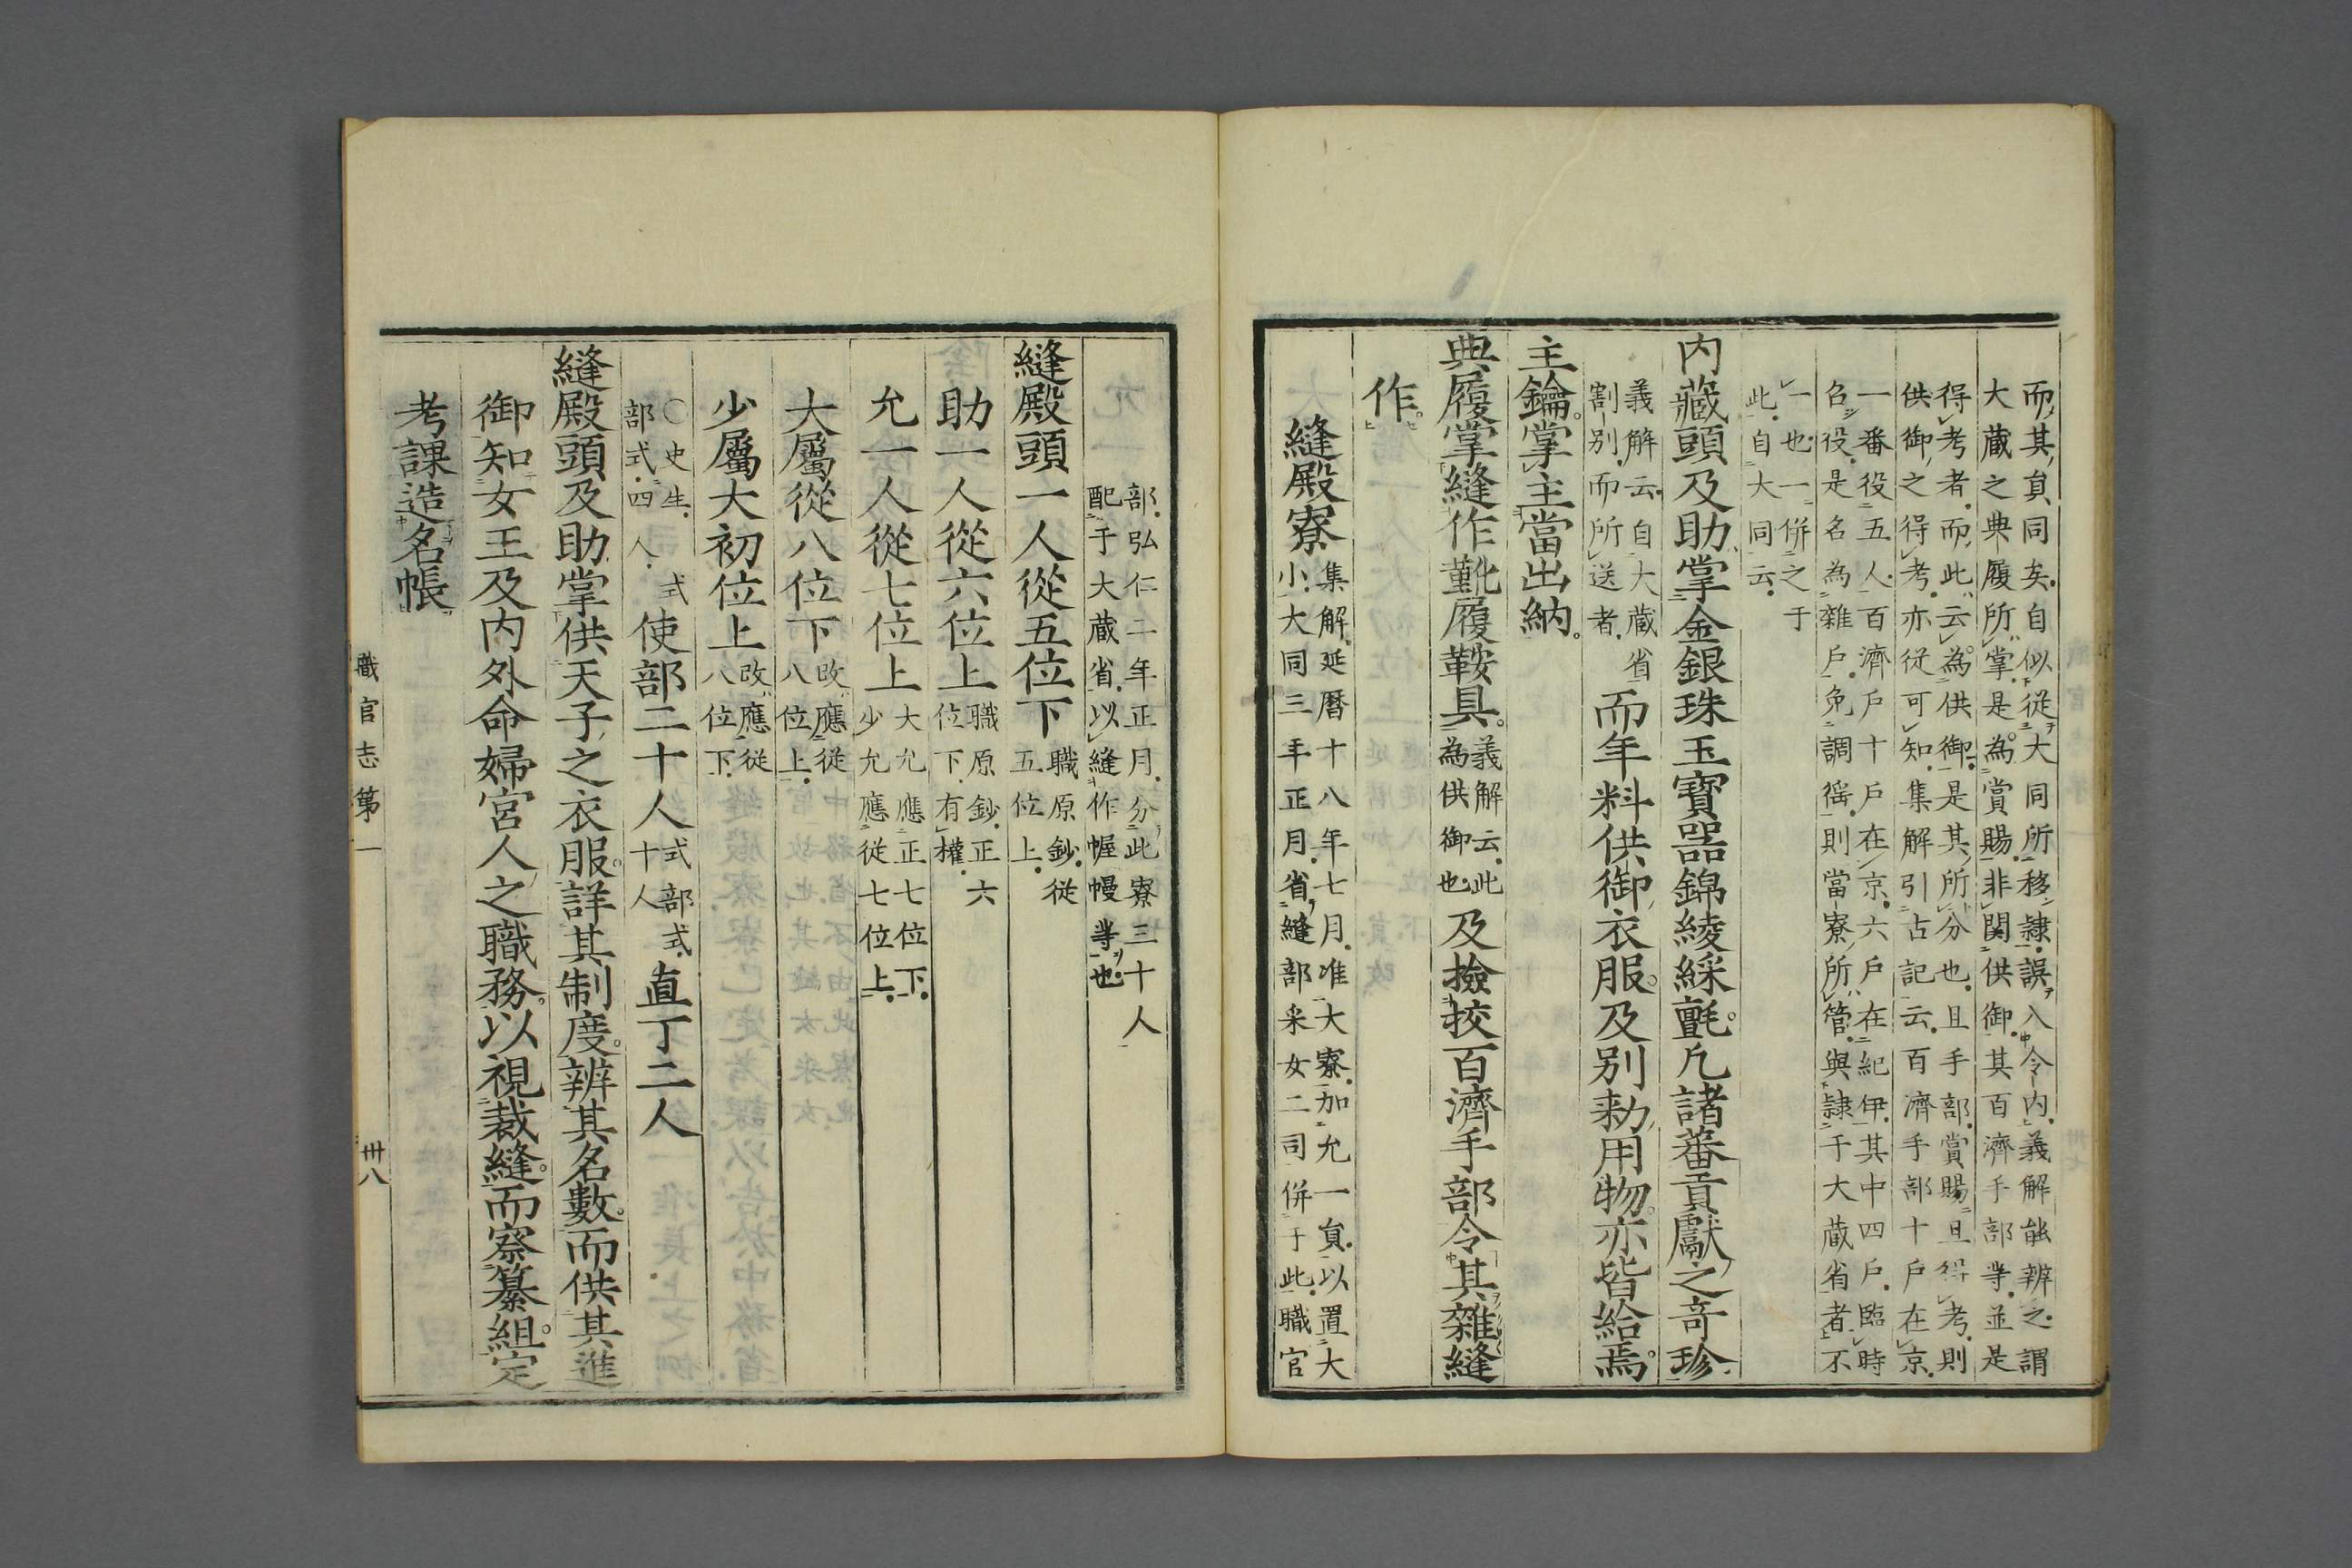 而其員同矣自似從大同所移隷誤入令内義解能辨之謂
大藏之典履所掌是為賞賜非関供御其百濟手部等並是
得考者而此云為供御是其所分也且手部賞賜且得考則
供御之得考亦従可知集解引占記云百濟手部十戸在京
一番役五人百濟戸十戸在京六戸在紀伊其中四戸臨時
召役是名為雜戸免調徭則當寮所管與隷于大蔵省者不
一也一併之于
此自大同云
内藏頭及助掌金銀珠玉寶器錦綾綵氈凢諸蕃貢獻之竒珍
義解云自大蔵省
割别而所送者
而年料供御衣服及别勅用物亦皆給焉
主鑰掌主當出納
典履掌縫作靴履鞍具
義解云此
為供御也
及撿挍百濟手部令其雜縫
作
縫殿寮
集解延暦十八年七月准大寮加允一員以置大
小大同三年正月省縫部采女二司併于此職官
部弘仁二年正月分此寮三十人
配于大蔵省以縫作幄幔等也
縫殿頭一人從五位下
職原鈔従
五位上
助一人從六位上
職原鈔正六
位下有權
允一人從七位上
大允應正七位下
少允應従七位上
大屬從八位下
改應従
八位上
少屬大初位上
改應従
八位下
〇史生式
部式四人
使部二十人
式部式
十人
直丁二人
縫殿頭及助掌供天子之衣服詳其制度辨其名數而供其進
御知女王及内外命婦宮人之職務以視裁縫而察纂組定
考課造名帳
職官志第一
卅八